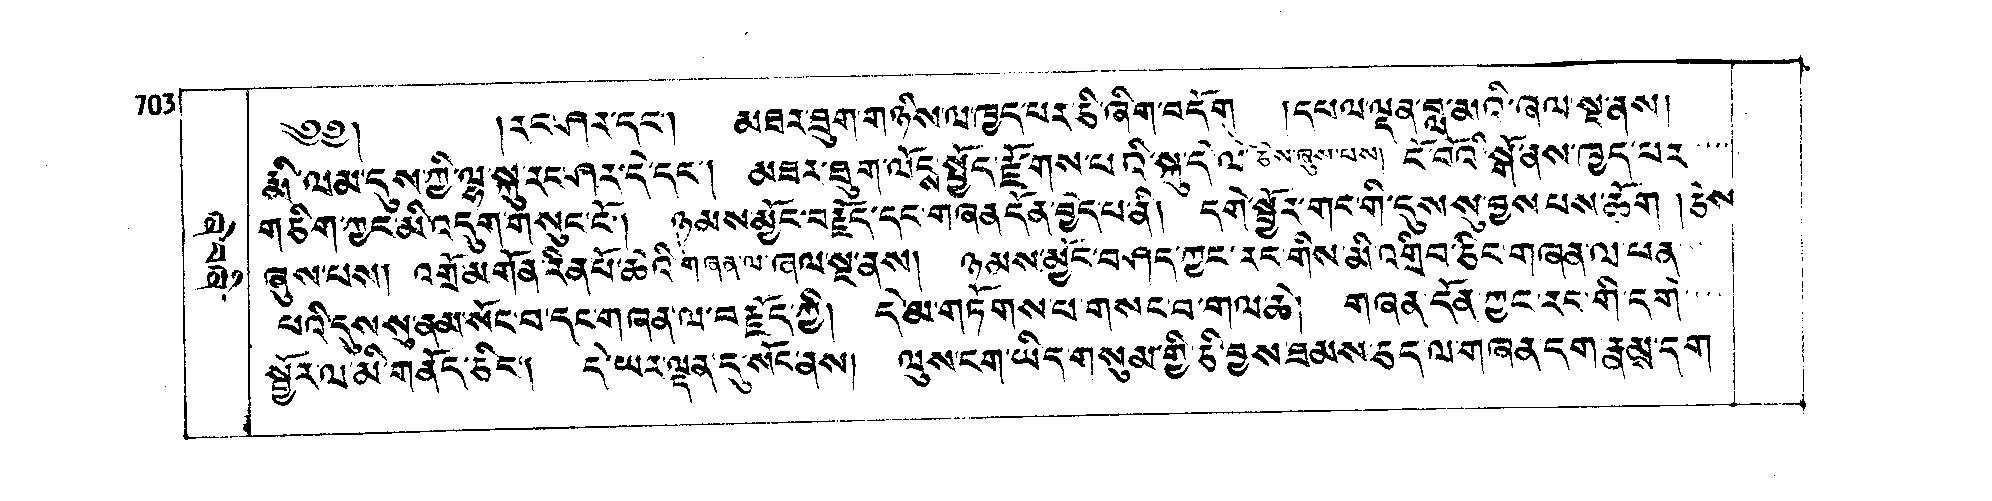 703
༄༅། །རང་ཤར་དང་། མཐར་ཐུག་གཉིས་ལ་ཁྱད་པར་ཅི་ཞིག་བདོག །དཔལ་ལྡན་བླ་མའི་ཞལ་སྔ་ནས།
རྨི་ལམ་དུས་ཀྱི་ལྷ་སྐུ་རང་ཤར་དེ་དང་། མཐར་ཐུག་ལོངས་སྤྱོད་རྫོགས་པའི་སྐུ་དེ་ལ་ཅེས་ཞུས་པས། ངོ་བོའི་སྒོ་ནས་ཁྱད་པར
གཅིག་ཀྱང་མི་འདུག་གསུང་ངོ་། ཉམས་མྱོང་བརྗོད་དང་གཞན་དོན་བྱེད་པ་ནི། དགེ་སྦྱོར་གང་གི་དུས་སུ་བྱས་པས་ཆོག །ཅེས
ཞུས་པས། འགྲོ་མགོན་རིན་པོ་ཆེའི་གཞན་ལ་ཞལ་སྔ་ནས། ཉམས་མྱོང་བཤད་ཀྱང་རང་གིས་མི་འགྲིབ་ཅིང་གཞན་ལ་ཕན
པའི་དུས་སུ་ནམ་སོང་བ་དང་གཞན་ལ་བརྗོད་ཀྱི། དེ་མ་གཏོགས་པ་གསང་བ་གལ་ཆེ། གཞན་དོན་ཀྱང་རང་གི་དགེ
སྦྱོར་ལ་མི་གནོད་ཅིང་། དེ་ཡར་ལྡན་དུ་སོང་ནས། ལུས་ངག་ཡིད་གསུམ་གྱི་ཅི་བྱས་ཐམས་ཅད་ལ་གཞན་དག་རྣམས་དག